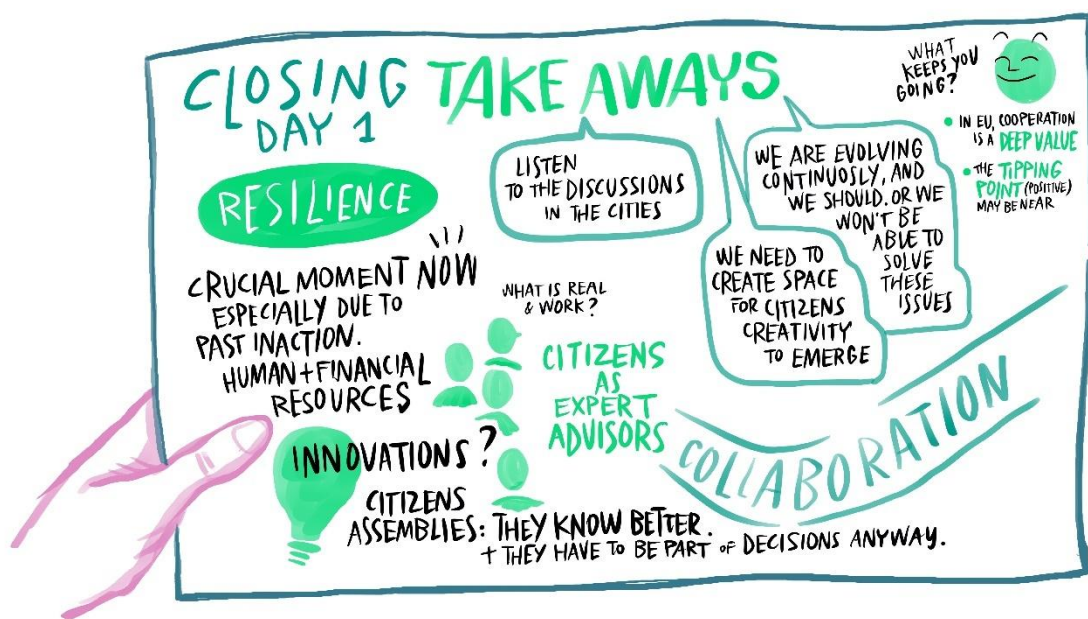 CLOSING
DAY 1
TAKE AWAYS
RESILIENCE
CRUCIAL MOMENT NOW
ESPECIALLY DUE TO
PAST INACTION.
HUMAN + FINANCIAL
RESOURCES
INNOVATIONS?
CITIZENS
ASSEMBLIES: THEY KNOW BETTER.
+ THEY HAVE TO BE PART OF DECISIONS ANYWAY.
WHAT IS REAL
& WORK?
CITIZENS
AS
EXPERT
ADVISORS
LISTEN
TO THE DISCUSSIONS
IN THE CITIES
WE NEED TO
CREATE SPACE
FOR CITIZENS
CREATIVITY
TO EMERGE
WE ARE EVOLVING
CONTINUOSLY, AND
WE SHOULD. OR WE
WON'T BE
ABLE TO
SOLVE
THESE
ISSUES
COLLABORATION
WHAT
KEEPS YOU
GOING?
• IN EU, COOPERATION
IS A DEEP VALUE
• THE TIPPING
POINT (POSITIVE)
MAY BE NEAR